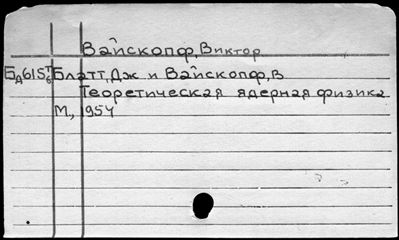 Вайскопф, Виктор
Блатт, Дж и Вайскопф, В
Теоретическая ядерная физика
М, 1954